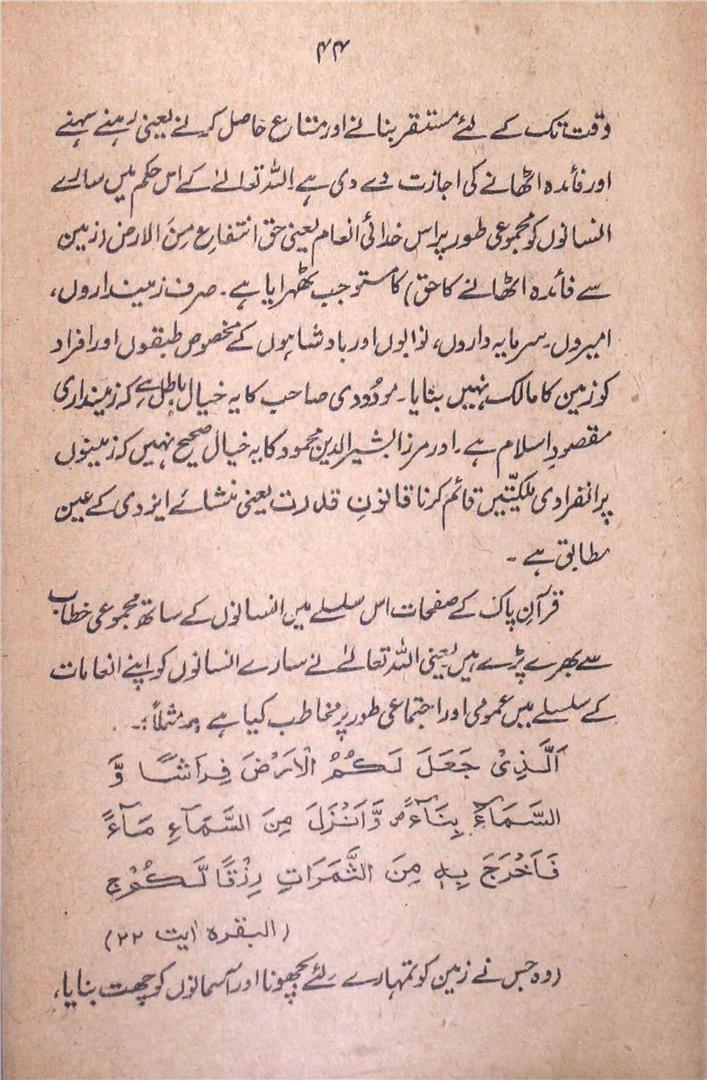 ۴۴
وقت تک کے لئے مستقر بنانے اور متاع حاصل کرنے یعنی رہنے سہنے
اور فائدہ اٹھانے کی اجازت دے دی ہے اللہ تعالےٰ کے اس حکم میں سارے
انسانوں کو مجموعی طور پر اس خدائی انعام یعنی حق انتفاع مِنَ الارض (زمین
سے فائدہ اٹھانے کا حق) کا مستوجب ٹھہرایا ہے۔ صرف زمینداروں،
امیروں۔ سرمایہ داروں، نوابوں اور بادشاہوں کے مخصوص طبقوں اور افراد
کو زمین کا مالک نہیں بنایا۔ مودُودی صاحب کا یہ خیال باطل ہے کہ زمینداری
مقصودِ اسلام ہے۔ اور مرزا بشیر الدین محمود کا یہ خیال صحیح نہیں کہ زمینوں
پر انفرادی ملکیّتیں قائم کرنا قانونِ قدرت یعنی منشائے ایزدی کے عین
مطابق ہے۔
قرآنِ پاک کے صفحات اس سلسلے میں انسانوں کے ساتھ مجموعی خطاب
سے بھرے پڑے ہیں یعنی اللہ تعالےٰ نے سارے انسانوں کو اپنے انعامات
کے سلسلے میں عمومی اور اجتماعی طور پر مخاطب کیا ہے مثلاً:۔
اَلَّذِیْ جَعَلَ لَکُمُ الْاَرْضَ فِرَاشًا وَّ
السَّمَآءَ بِنَآءً ص وَّاَنْزَلَ مِنَ السَّمَآءِ مَآءً
فَاَخْرَجَ بِہٖ مِنَ الثَّمَرَاتِ رِزْقًا لَّکُمْ ج
(البقرہ اٰیت ۲۲)
(وہ جس نے زمین کو تمہارے لئے بچھونا اور آسمانوں کو چھت بنایا،